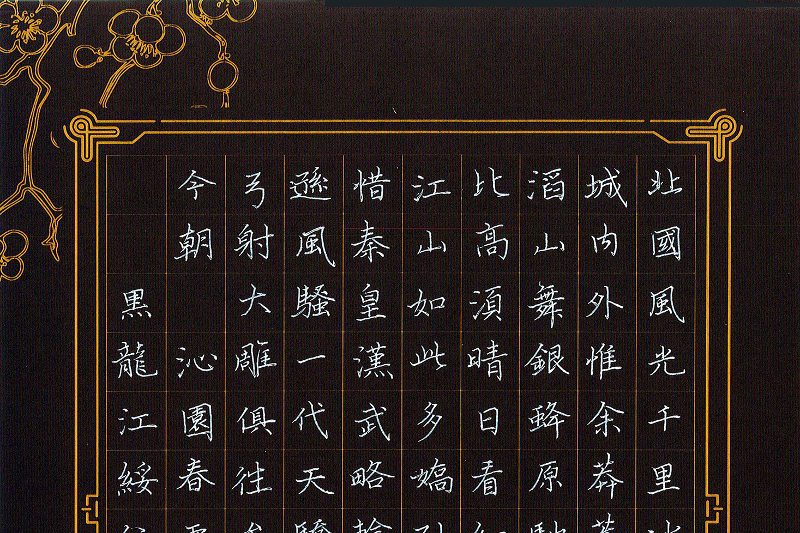 北國風光千里
城内外惟余莽
滔山舞銀蜂原
比高湏晴日看
江山如此多嬌
惜秦皇漢武略
遜風騷一代天
弓射大雕俱徃
今朝 沁園春
黑龍江綏